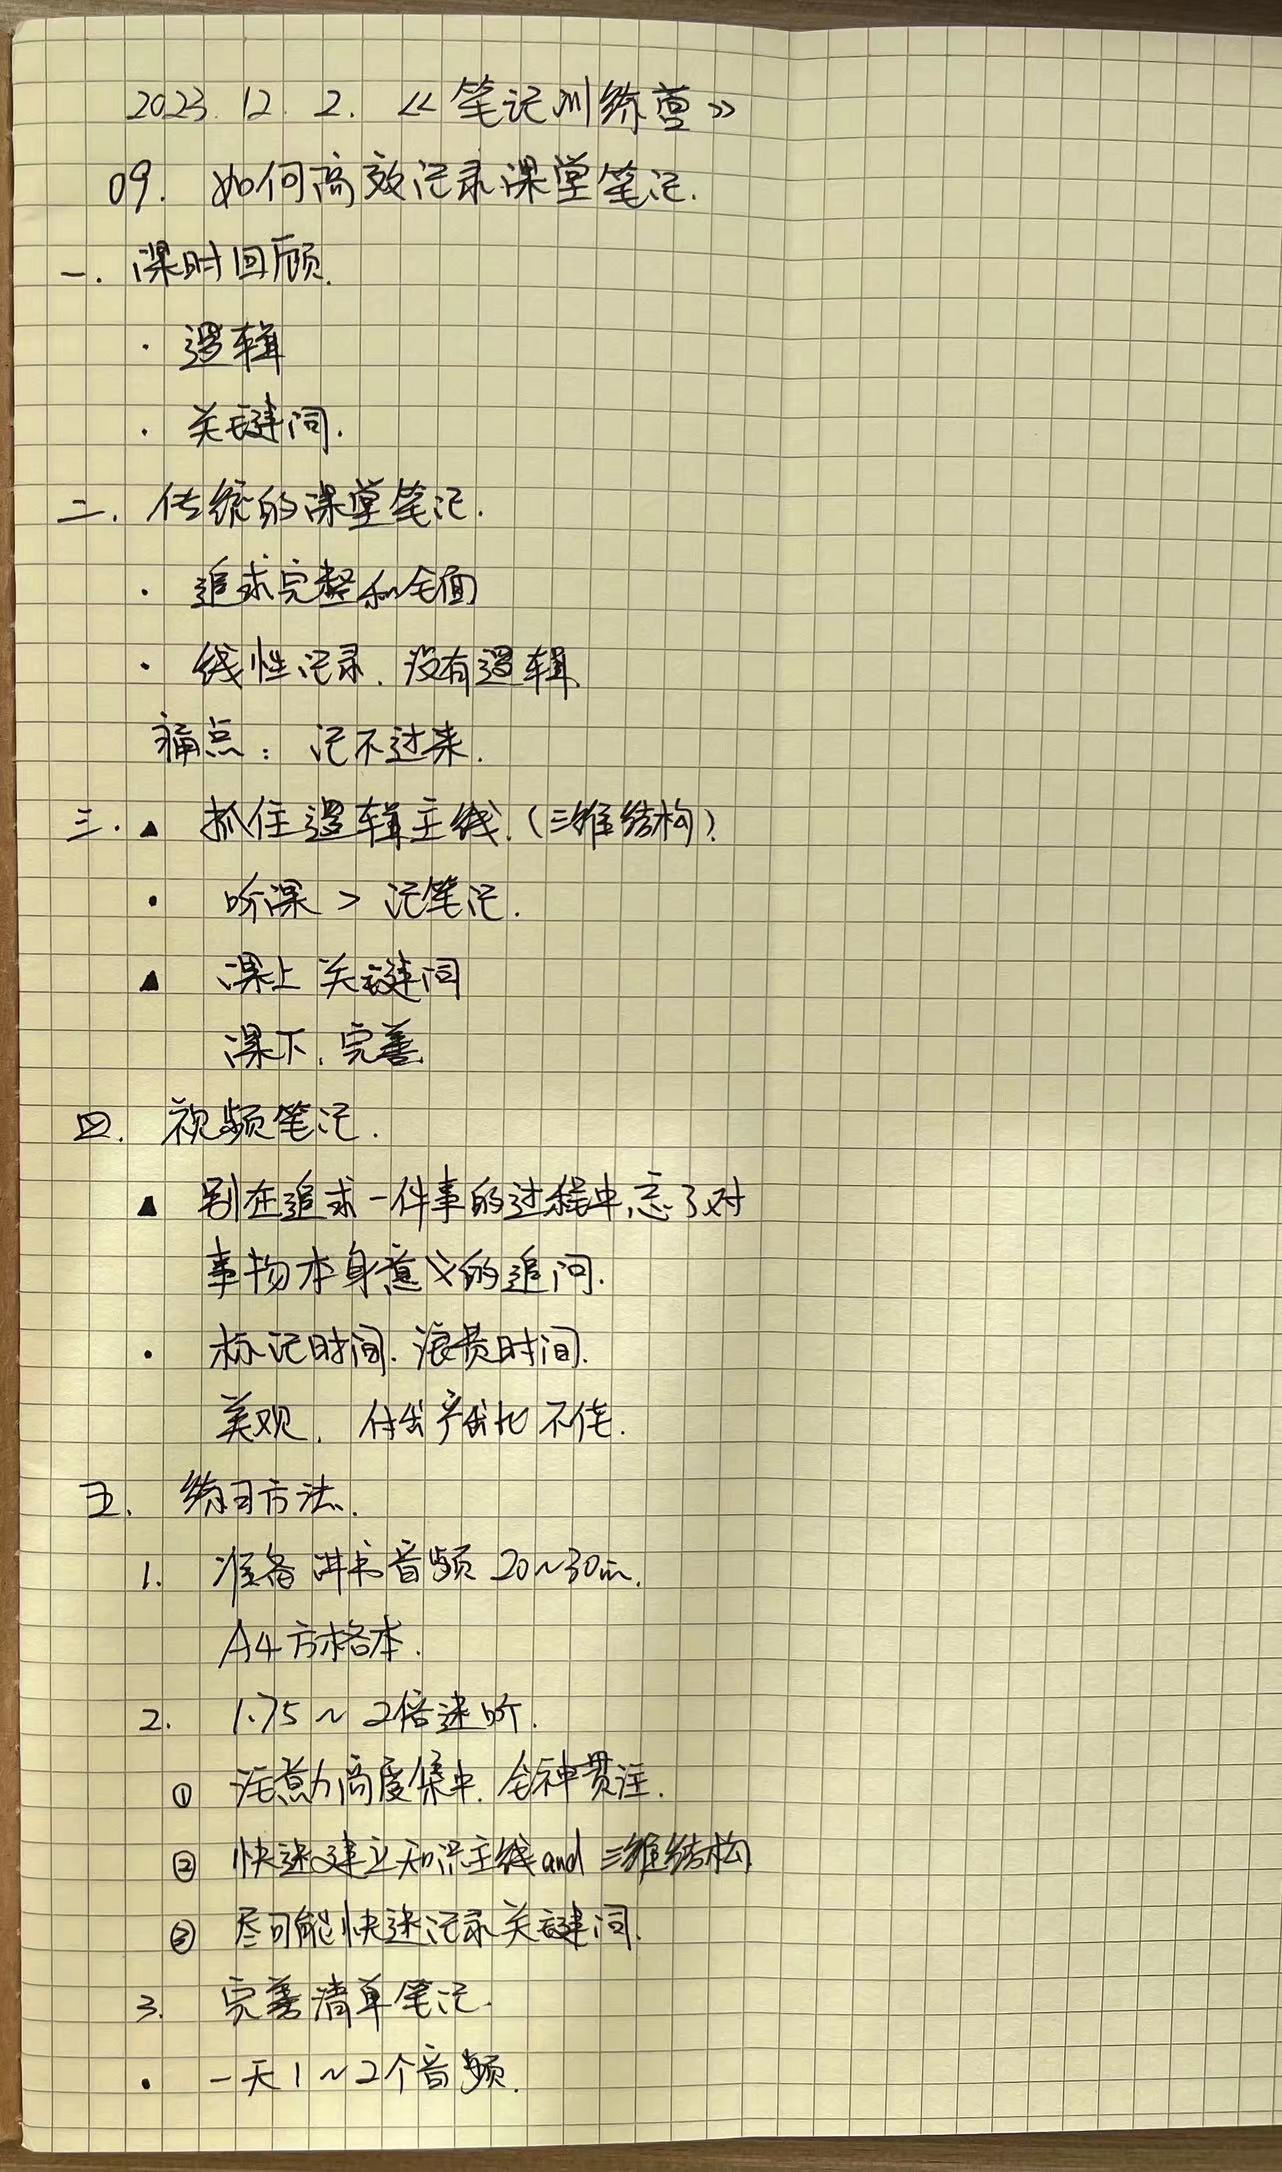 2023.12.2.《笔记训练营》
09. 如何高效记录课堂笔记.
一. 课时回顾.
· 逻辑
· 关键词.
二. 传统的课堂笔记.
· 追求完整和全面
· 线性记录. 没有逻辑.
痛点: 记不过来.
三. ▲ 抓住逻辑主线.(三维结构)
· 听课 > 记笔记.
▲ 课上 关键词
课下. 完善.
四. 视频笔记.
▲ 别在追求一件事的过程中,忘了对
事物本身意义的追问.
· 标记时间. 浪费时间.
美观. 付出产出比不佳.
五. 练习方法.
1. 准备讲书音频 20~30min.
A4方格本.
2. 1.75~2倍速听.
① 注意力高度集中. 全神贯注.
② 快速建立知识主线and三维结构
③ 尽可能快速记录关键词.
3. 完善清单笔记.
· 一天1~2个音频.